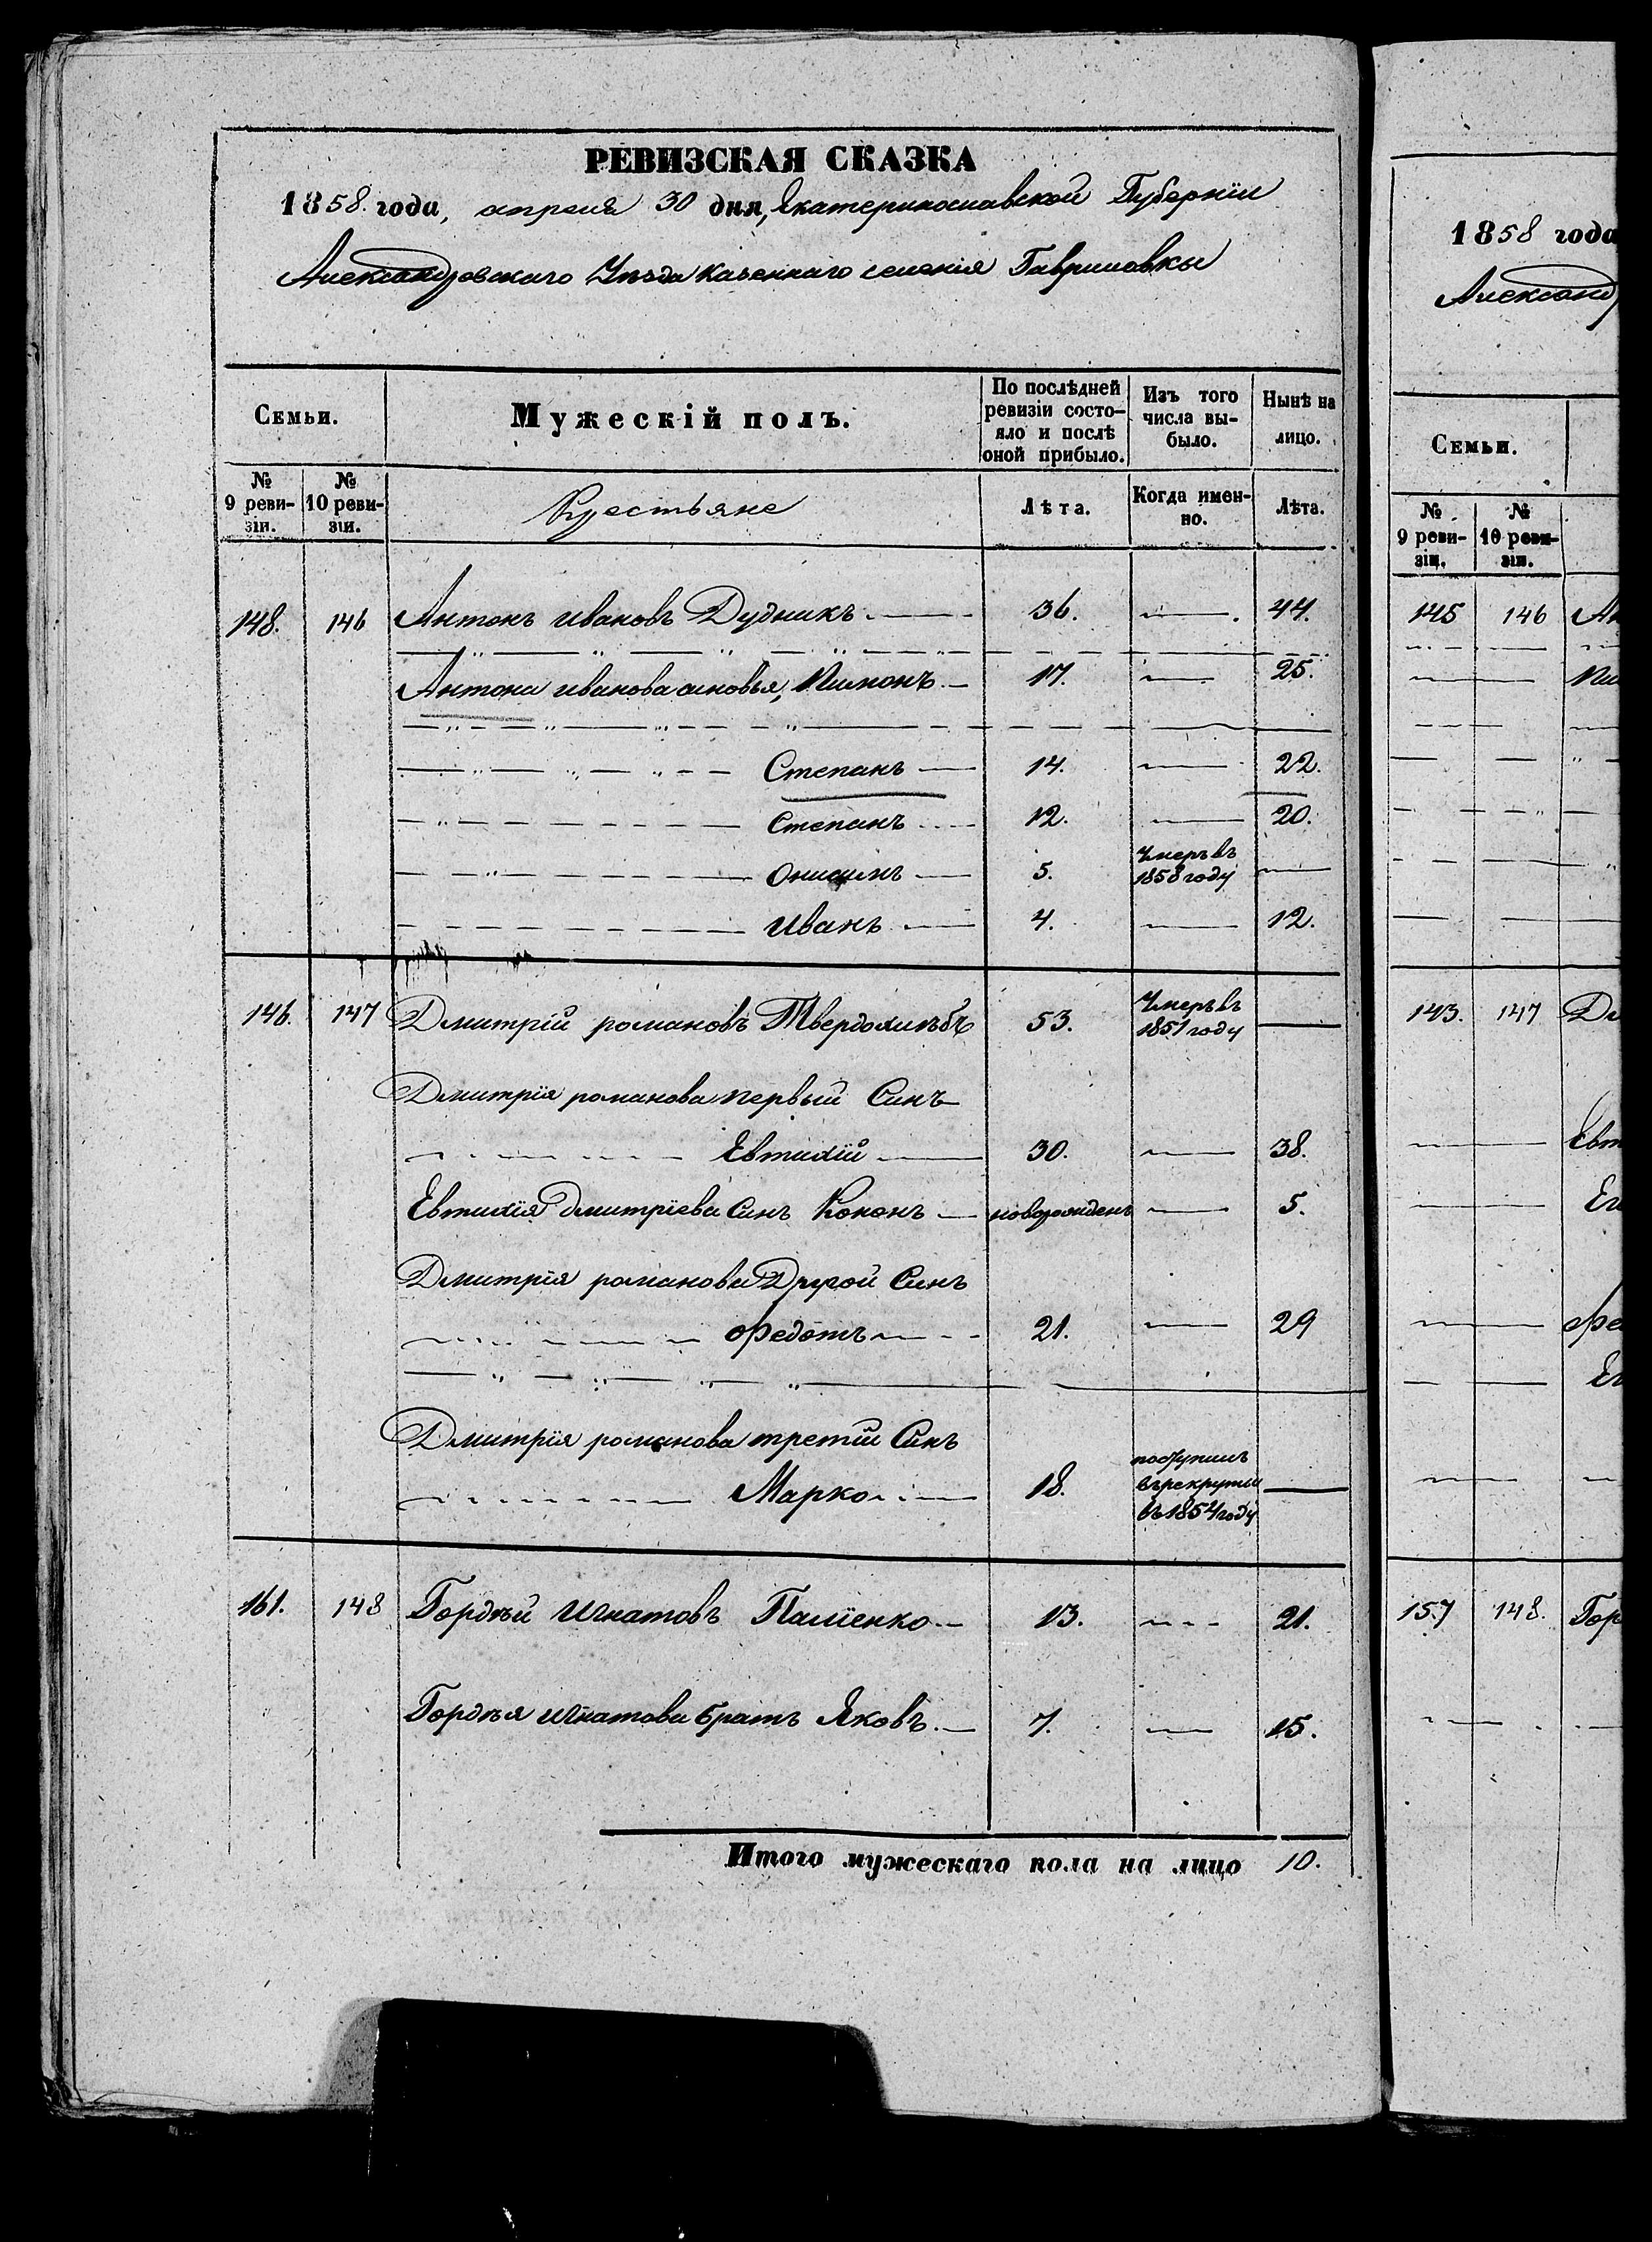 РЕВИЗСКАЯ СКАЗКА
1858. года, апреля 30 дня, Екатеринославской Губернїи
Александровскаго Уѣзда казеннаго селенія Гавриловки
Семьи.
Мужескій полъ.
По послѣдней ревизіи состо-
яло и послѣ
оной прибыло.
Изъ того
числа вы-
было.
Нынѣ на
лицо.
№
9 реви-
зіи.
№
10 реви-
зіи.
Крестьяне
Лѣта.
Когда имен-
но.
Лѣта.
148. 146 Антонъ ивановъ Дудникъ 36. 44.
Антона иванова сыновья, Пимонъ 17. 25.
Степанъ 14. 22.
Степанъ 12. 20.
Онисимъ 5. Умеръ въ
1858 году
Иванъ 4. 12.
146. 147 Дмитрій романовъ Твердохлѣбъ 53. Умеръ въ
1851 году
Дмитрїя романова первый Синъ
Евтихїй 30. 38.
Евтихїя Дмитрїева Синъ Кононъ новорожденъ 5.
Дмитрїя романова Другой Синъ
Федотъ 21. 29
Дмитрїя романова третїй Синъ
Марко 18. поступилъ
въ рекруты
въ 1854 году
161. 148 Гордѣй Игнатовъ 13. 21.
Гордѣя Игнатова братъ Яковъ 7. 15.
Итого мужескаго пола на лицо 10.
1858 года
Александ
Семьи.
№
9 реви-
зіи.
№
10 реви-
зіи.
145 146 Ан
Пи
143. 147 Дм
Евт
Ев
Фе
157 148. Гор